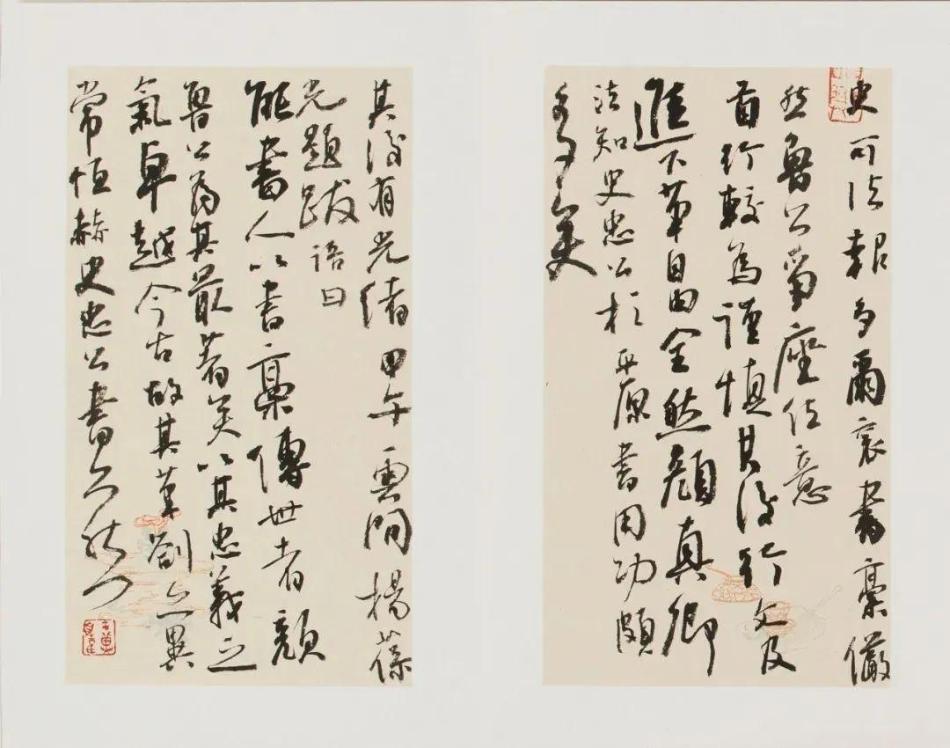 史可法報多爾袞書稾儼
然魯公爭座位意
首行較為謹慎其後行文及
進下筆自由全然顏真卿
法知史忠公於平原書用功頗
多矣
其後有光緒甲午雲間楊葆
光題跋語曰
能書人以書稾傳世者顏
魯公為其最著矣以其忠義之
氣卓越今古故其筆劄亦異
常恒赫史忠公書亦